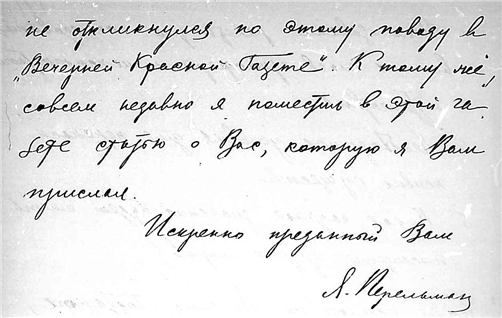 не откликнулся по этому поводу в
„Вечерней Красной Газете“. К тому же,
совсем недавно я поместил в этой га-
зете статью о Вас, которую я Вам
прислал.
Искренно преданный Вам
Я. Перельман